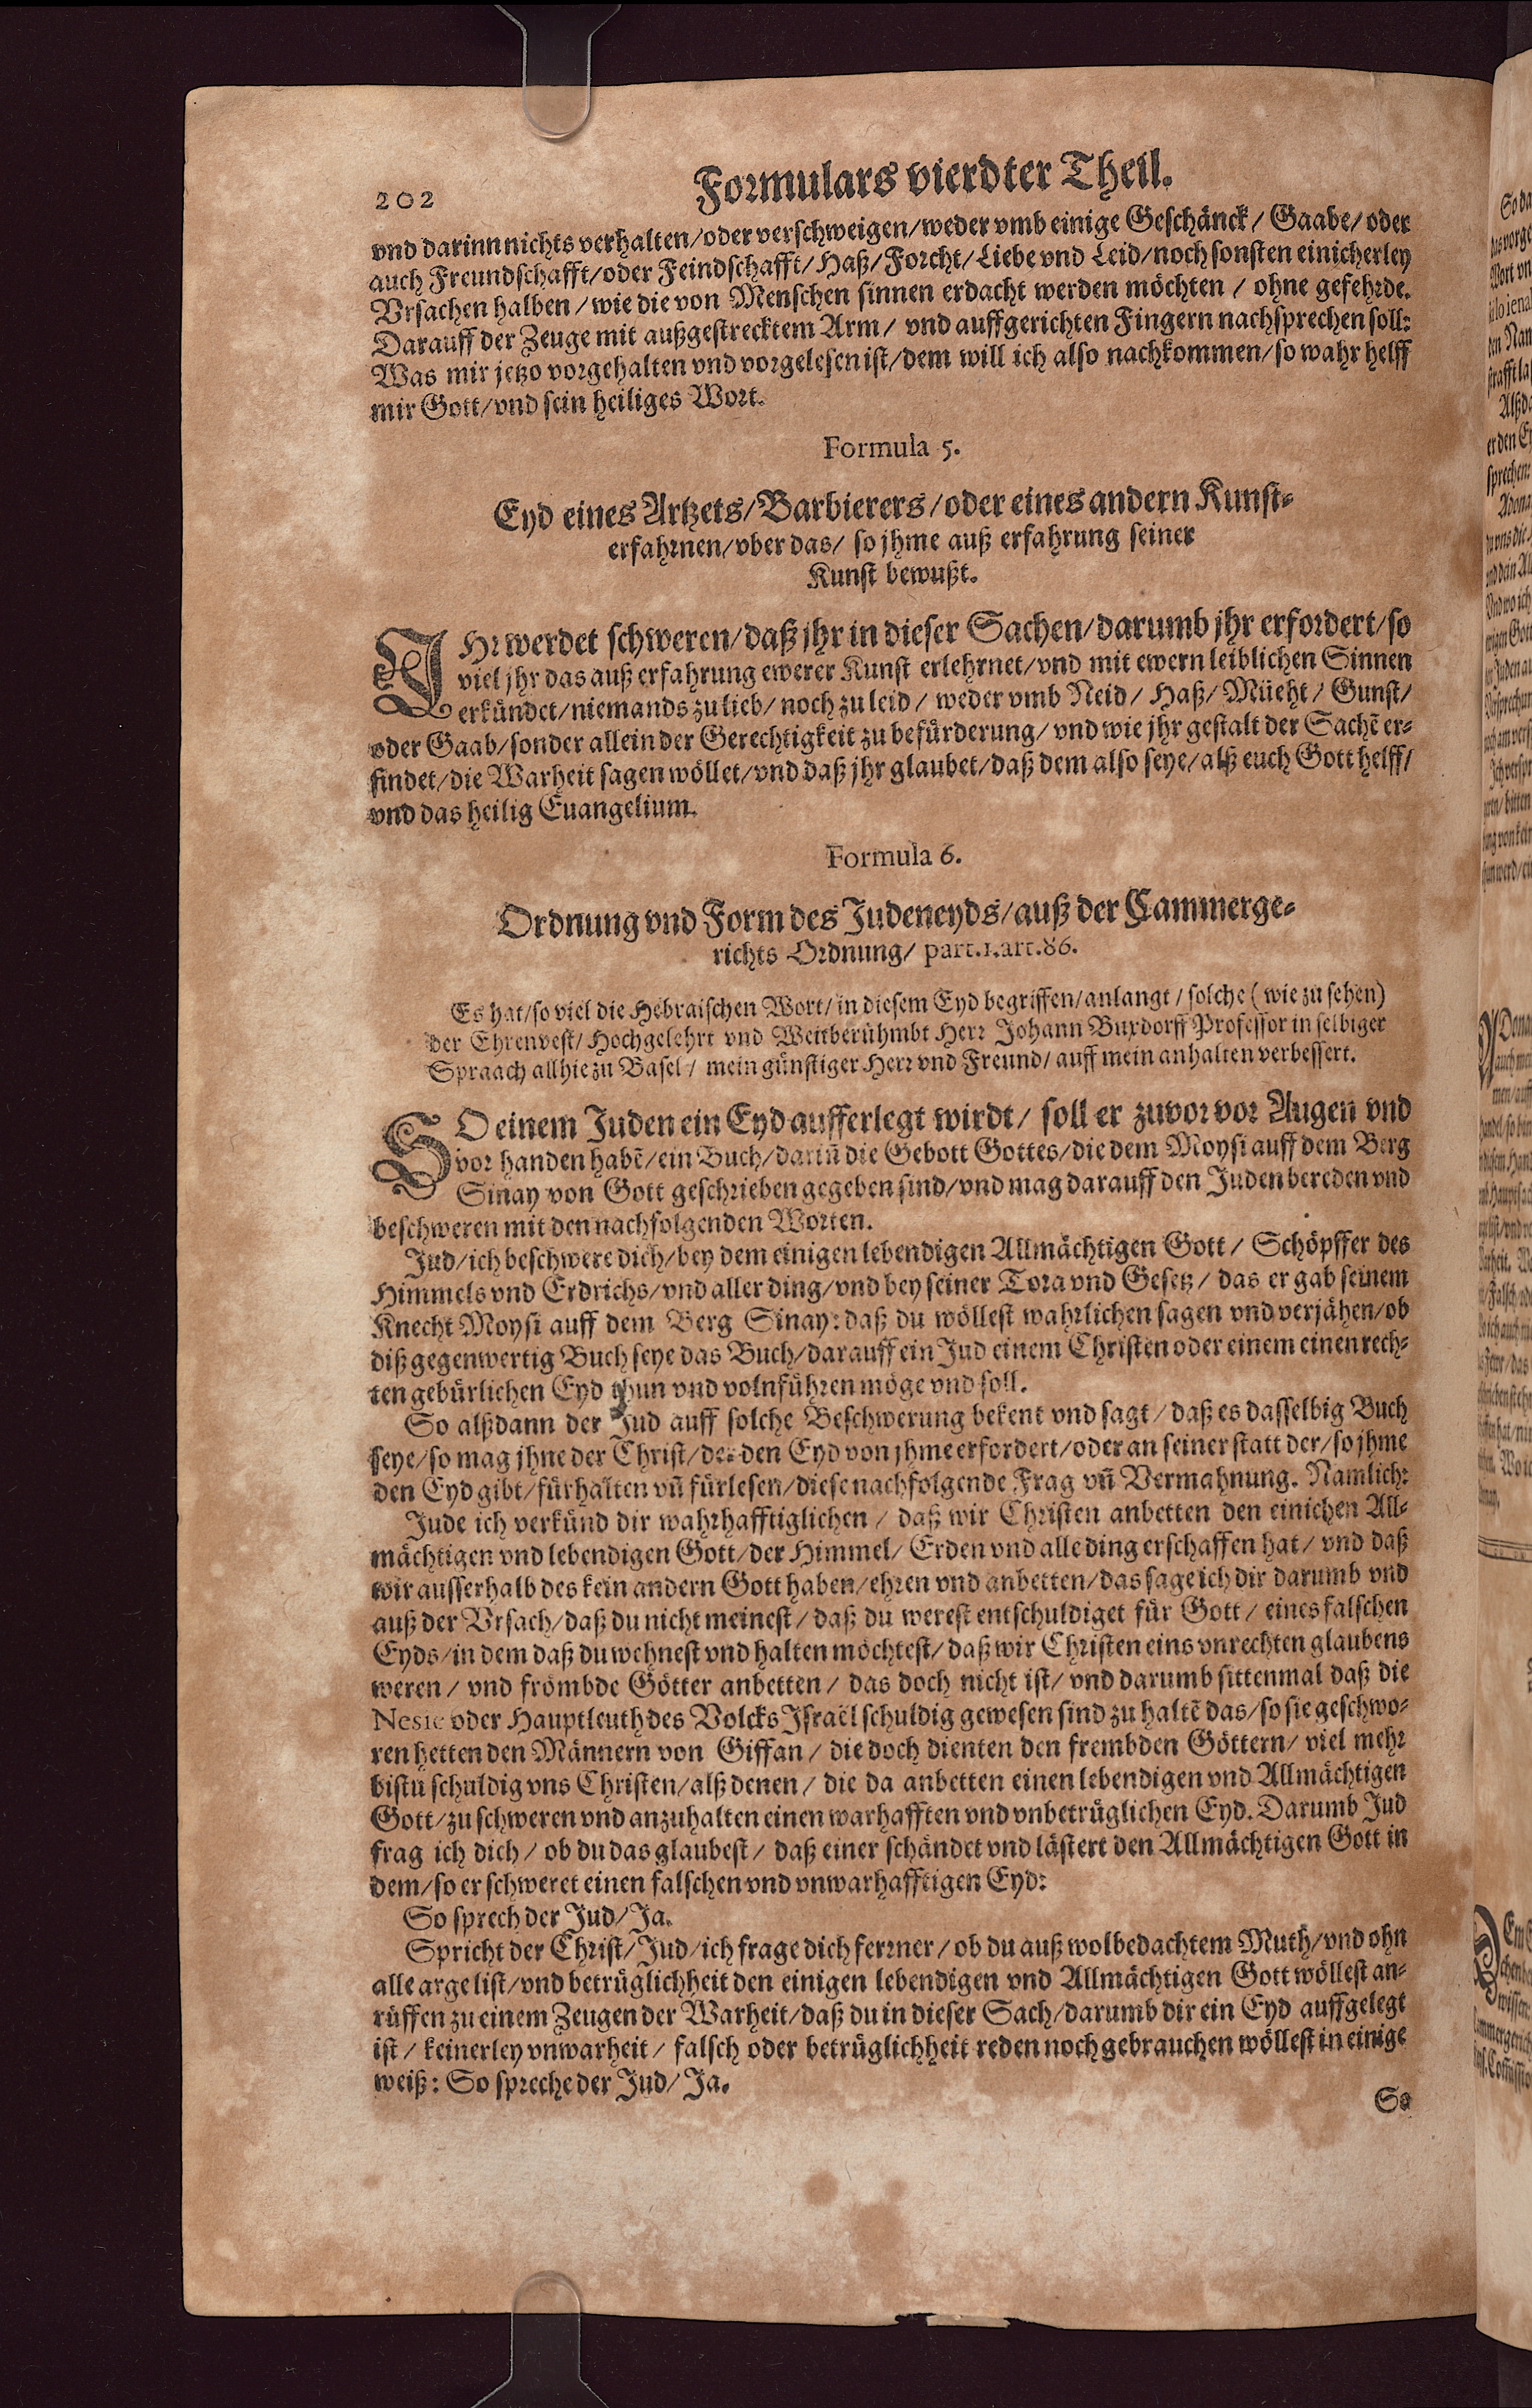 202
Formulars vierdter Theil.
vnd darinn nichts verhalten/oder verschweigen/weder vmb einige Geschänck/ Gaabe/ oder
auch Freundschafft/oder Feindschafft/ Haß/ Forcht/ Liebe vnd Leid/noch sonsten einicherley
Vrsachen halben/ wie die von Menschen sinnen erdacht werden möchten / ohne gefehrde.
Darauff der Zeuge mit außgestrecktem Arm/ vnd auffgerichten Fingern nachsprechen soll:
Was mir jetzo vorgehalten vnd vorgelesen ist/ dem will ich also nachkommen/ so wahr helff
mir Gott/vnd sein heiliges Wort.
Formula 5.
Eyd eines Artzets/Barbierers/oder eines andern Kunst-
erfahrnen/vber das/ so jhme auß erfahrung seiner
Kunst bewußt.
IHr werdet schweren/daß jhr in dieser Sachen/darumb jhr erfordert/so
viel jhr das auß erfahrung ewerer Kunst erlehrnet/vnd mit ewern leiblichen Sinnen
erkündet/niemands zu lieb/ noch zu leid / weder vmb Neid/ Haß/ Müeht/ Gunst/
oder Gaab/sonder allein der Gerechtigkeit zu befürderung/ vnd wie jhr gestalt der Sachẽ er-
findet/die Warheit sagen wöllet/vnd daß jhr glaubet/daß dem also seye/alß euch Gott helff/
vnd das heilig Euangelium.
Formula 6.
Ordnung vnd Form des Judeneyds/auß der Cammerge-
richts Ordnung/ part.1.art.86.
Es hat/so viel die Hebraischen Wort/in diesem Eyd begriffen/anlangt / solche (wie zu sehen)
der Ehrenvest/ Hochgelehrt vnd Weitberühmbt Herr Johann Buxdorff Professor in selbiger
Spraach allhie zu Basel/ mein günstiger Herr vnd Freund/ auff mein anhalten verbessert.
SO einem Juden ein Eyd aufferlegt wirdt/ soll er zuvor vor Augen vnd
vor handen habẽ/ein Buch/darin̄ die Gebott Gottes/die dem Moysi auff dem Berg
Sinay von Gott geschrieben gegeben sind/vnd mag darauff den Juden bereden vnd
beschweren mit den nachfolgenden Worten.
Jud/ich beschwere dich/bey dem einigen lebendigen Allmächtigen Gott/ Schöpffer des
Himmels vnd Erdrichs/vnd aller ding/vnd bey seiner Tora vnd Gesetz/ das er gab seinem
Knecht Moysi auff dem Berg Sinay: daß du wöllest wahrlichen sagen vnd verjähen/ob
diß gegenwertig Buch seye das Buch/darauff ein Jud einem Christen oder einem einen rech-
ten gebürlichen Eyd thun vnd volnführen möge vnd soll.
So alßdann der Jud auff solche Beschwerung bekent vnd sagt/ daß es dasselbig Buch
seye/so mag jhne der Christ/der den Eyd von jhme erfordert/oder an seiner statt der/so jhme
den Eyd gibt/fürhalten vn̄ fürlesen/diese nachfolgende Frag vn̄ Vermahnung. Namlich:
Jude ich verkünd dir wahrhafftiglichen / daß wir Christen anbetten den einichen All-
mächtigen vnd lebendigen Gott/der Himmel/ Erden vnd alle ding erschaffen hat/ vnd daß
wir ausserhalb des kein andern Gott haben/ehren vnd anbetten/das sage ich dir darumb vnd
auß der Vrsach/daß du nicht meinest/ daß du werest entschuldiget für Gott/ eines falschen
Eyds/in dem daß du wehnest vnd halten möchtest/ daß wir Christen eins vnrechten glaubens
weren/ vnd frömbde Götter anbetten/ das doch nicht ist/ vnd darumb sittenmal daß die
Nesie oder Hauptleuth des Volcks Israël schuldig gewesen sind zu haltẽ das/so sie geschwo-
ren hetten den Männern von Giffan/ die doch dienten den frembden Göttern/ viel mehr
bistu schuldig vns Christen/alß denen/ die da anbetten einen lebendigen vnd Allmächtigen
Gott/zu schweren vnd anzuhalten einen warhafften vnd vnbetrüglichen Eyd. Darumb Jud
frag ich dich/ ob du das glaubest/ daß einer schändet vnd lästert den Allmächtigen Gott in
dem/so er schweret einen falschen vnd vnwarhafftigen Eyd:
So sprech der Jud/Ja.
Spricht der Christ/Jud/ich frage dich ferrner/ ob du auß wolbedachtem Muth/vnd ohn
alle arge list/vnd betrüglichheit den einigen lebendigen vnd Allmächtigen Gott wöllest an-
rüffen zu einem Zeugen der Warheit/daß du in dieser Sach/darumb dir ein Eyd auffgelegt
ist/ keinerley vnwarheit/ falsch oder betrüglichheit reden noch gebrauchen wöllest in einige
weiß: So spreche der Jud/ Ja.
So